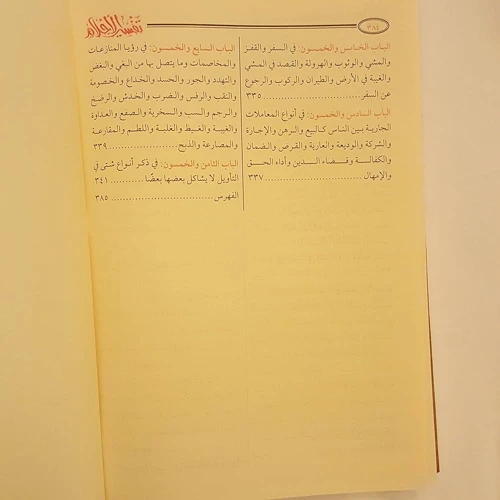 ٣٨٤
تفسير الأحلام
الباب الخامس والخمسون: في السفر والقفز
والمشي والوثوب والهرولة والقصد في المشي
والغيبة في الأرض والطيران والركوب والرجوع
عن السفر ............................ ٣٣٥
الباب السادس والخمسون: في أنواع المعاملات
الجارية بين الناس كالبيع والرهن والإجارة
والشركة والوديعة والعارية والقرض والضمان
والكفالة وقضاء الدين وأداء الحق
والإمهال ............................ ٣٣٧
الباب السابع والخمسون: في رؤيا المنازعات
والمخاصمات وما يتصل بها من البغي والبغض
والتهدد والجور والحسد والخداع والخصومة
والنقب والرفس والضرب والخدش والرضخ
والرجم والسب والسخرية والصفع والعداوة
والغيبة والغيظ والغلبة واللطم والمقارعة
والمصارعة والذبح .................... ٣٣٩
الباب الثامن والخمسون: في ذكر أنواع شتى في
التأويل لا يشاكل بعضها بعضًا ........... ٣٤١
الفهرس ............................ ٣٨٥